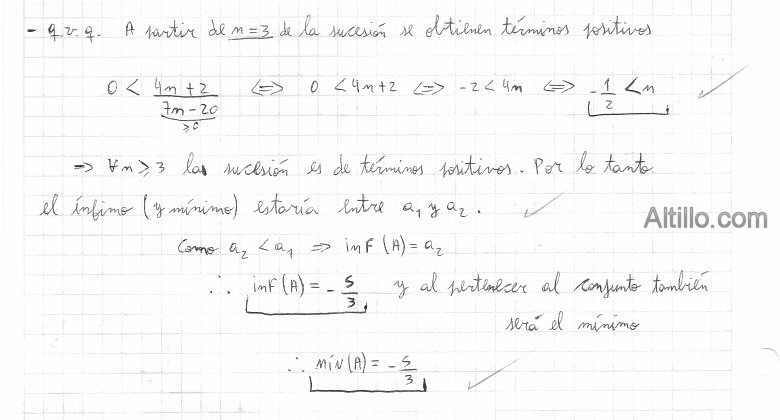 - q.v.q. A partir de n=3 de la sucesión se obtienen términos positivos
0 < (4n+2)/(7n-20) ⟺ 0 < 4n+2 ⟺ -2 < 4n ⟺ -1/2 < n ✓
≥0
⇒ ∀n≥3 la sucesión es de términos positivos. Por lo tanto
el ínfimo (y mínimo) estaría entre a₁ y a₂. ✓
Altillo.com
Como a₂ < a₁ ⇒ inf (A) = a₂
∴ inf (A) = -5/3 y al pertenecer al conjunto también
será el mínimo
∴ mín (A) = -5/3 ✓